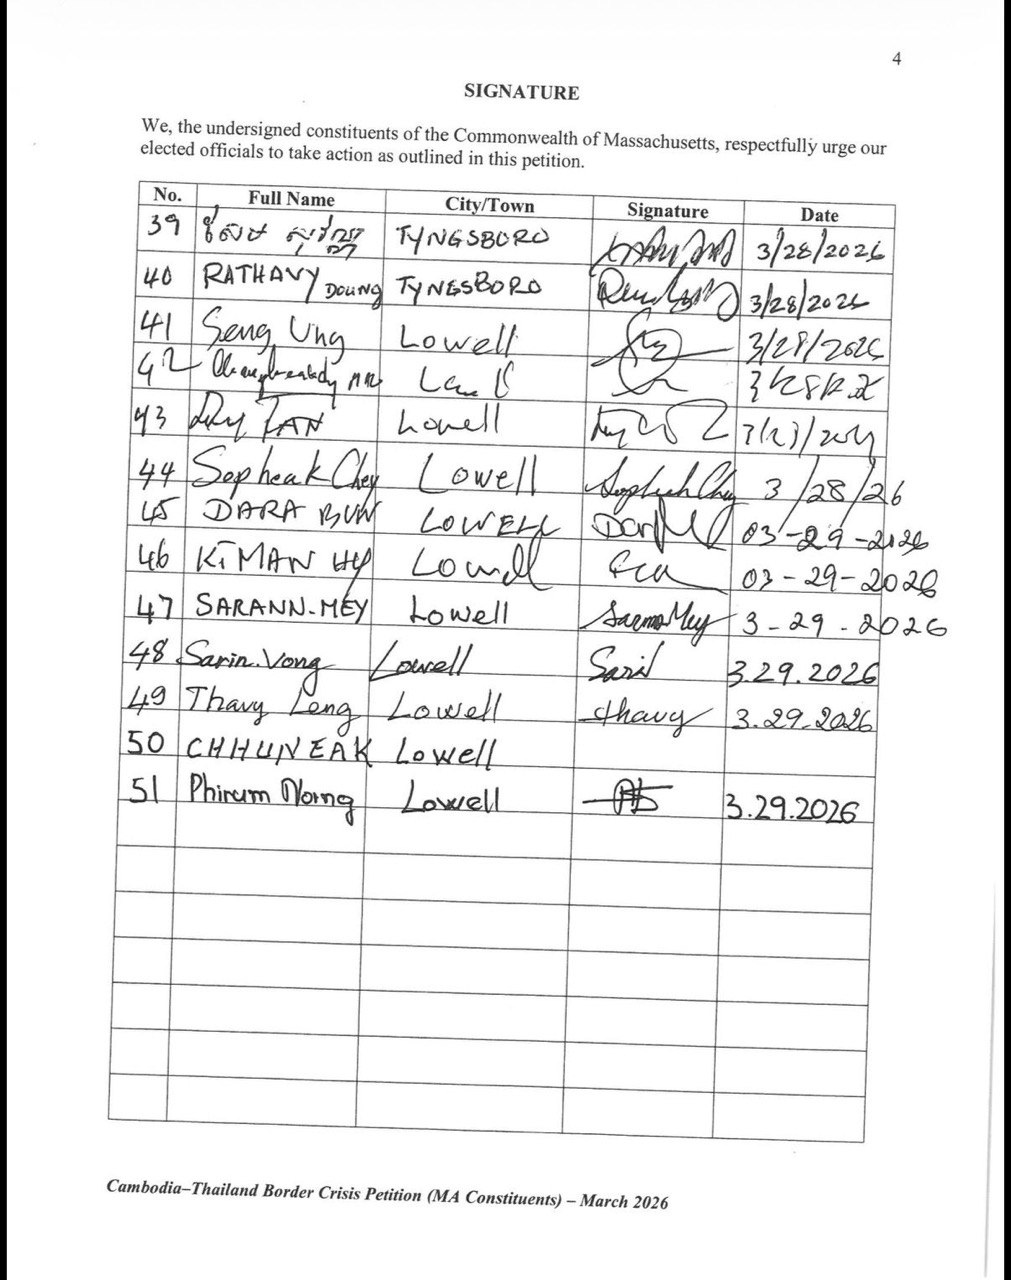 4
SIGNATURE
We, the undersigned constituents of the Commonwealth of Massachusetts, respectfully urge our
elected officials to take action as outlined in this petition.
No. Full Name City/Town Signature Date
39 TYNGSBORO 3/28/2026
40 RATHAVY DOUNG TYNESBORO 3/28/2026
41 Seng Ung Lowell 3/28/2026
42
43 TAN Lowell
44 Sopheak Chey Lowell Sopheak Chey 3/28/26
45 DARA BUN LOWELL 03-29-2026
46 KIMAN HY Lowell 03-29-2026
47 SARANN.MEY Lowell 3-29.2026
48 Sarin.Vong Lowell 3.29.2026
49 Thavy Leng Lowell thavy 3.29.2026
50 CHHUN EAK Lowell
51 Phirum Norng Lowell 3.29.2026
Cambodia–Thailand Border Crisis Petition (MA Constituents) – March 2026